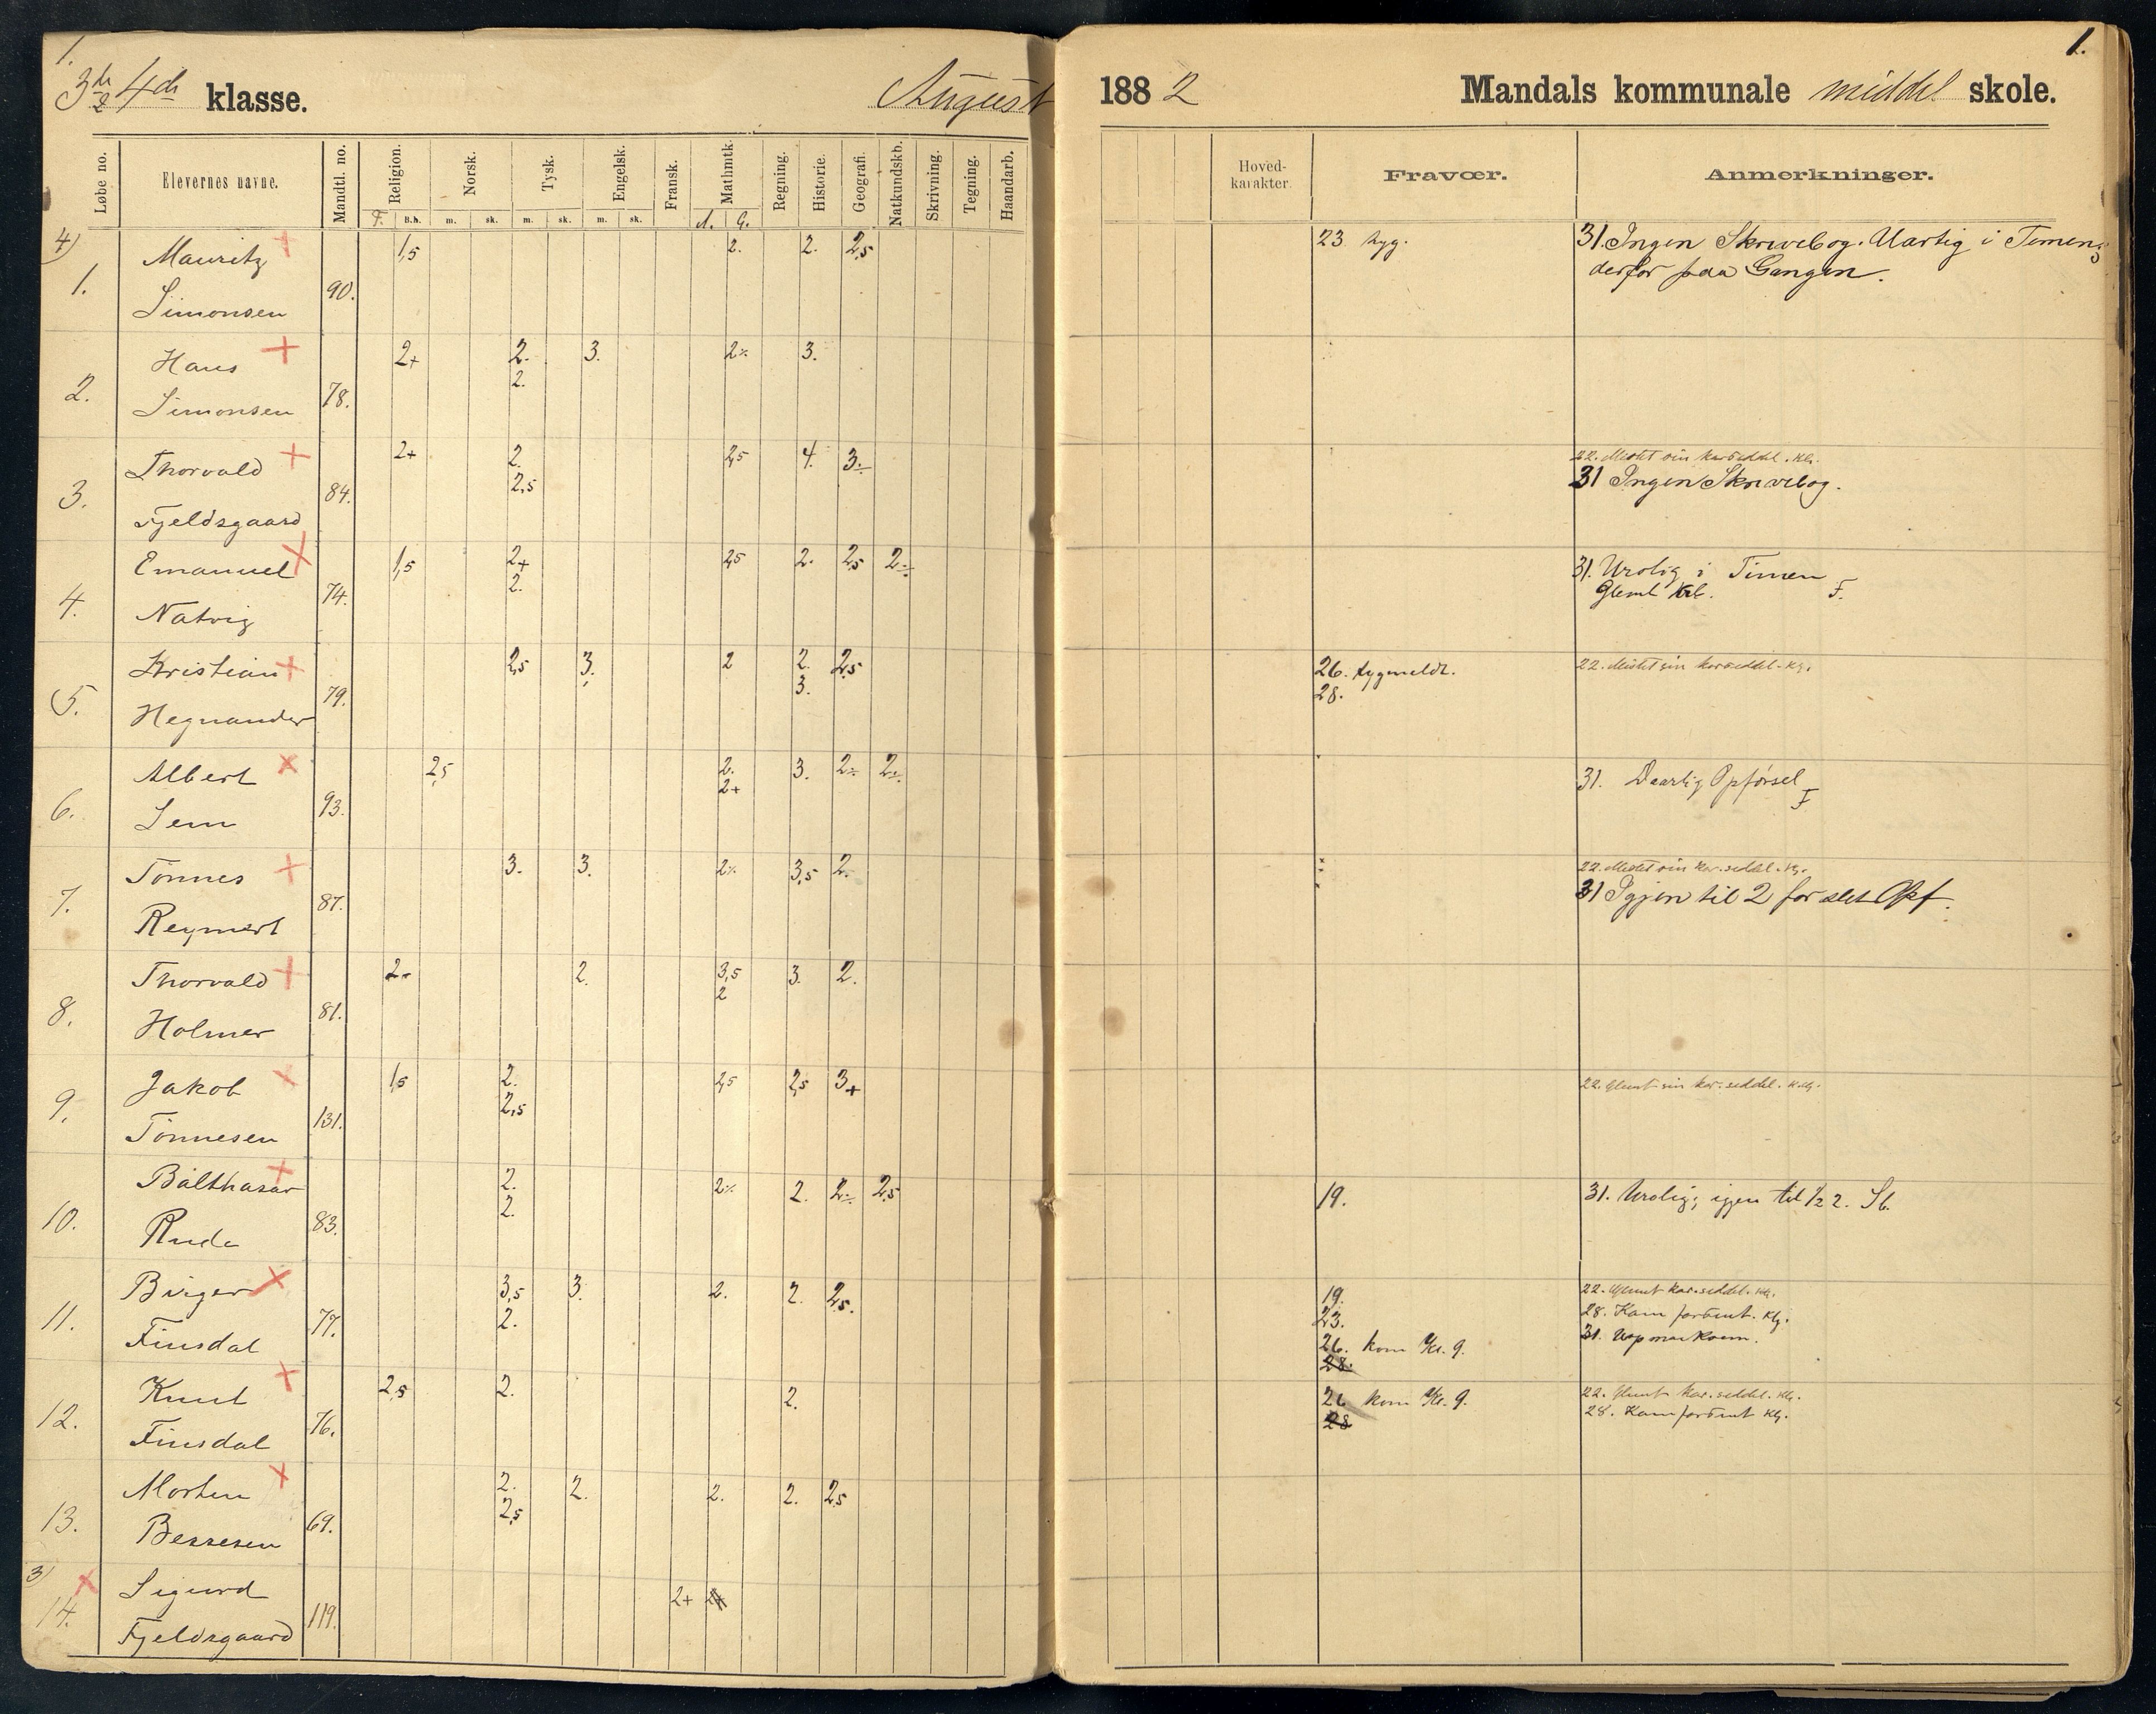 1.
3die & 4de klasse.
August
188 2
Mandals kommunale middel skole.
1.
Løbe no.
Elevernes navne.
Mandtl. no.
Religion.
Norsk.
Tysk.
Engelsk.
Fransk.
Mathmtk.
Regning.
Historie.
Geografi.
Natkundskb.
Skrivning.
Tegning.
Haandarb.
Hoved-
karakter.
Fravær.
Anmerkninger.
F. B.h. m. sk. m. sk. m. sk. A. G.
4)
1. Mauritz Simonsen 90. 1,5 2. 2. 2,5
23 syg.
31. Ingen Skrivebog. Uartig i Timen;
derfor paa Gangen.
2. Hans Simonsen 78. 2+ 2. 3. 2% 3.
2.
3. Thorvald Fjeldsgaard 84. 2+ 2. 2,5 4. 3÷
2,5
22. Mistet sin karseddel. Kg.
31 Ingen Skrivebog.
4. Emanuel Natvig 74. 1,5 2+ 2,5 2. 2,5 2÷
2.
31. Urolig i Timen
Glemt F.
5. Kristian Hegnander 79. 2,5 3. 2 2. 2,5
3.
26. sygmeldt.
28.
22. Mistet sin karseddel. Kg.
6. Albert Sem 93. 2,5 2. 3. 2÷ 2÷
2+
31. Daarlig Opførsel F
7. Tönnes Reymert 87. 3. 3. 2% 3,5 2.
22. Mistet sin kar.seddel. Kg.
31 Igjen til 2 for slet Opf.
8. Thorvald Holmer 81. 2÷ 2. 3,5 3. 2.
2
9. Jakob Tönnesen 131. 1,5 2. 2,5 2,5 3+
2,5
22. Glemt sin kar.seddel. Kg.
10. Balthasar Rude 83. 2. 2% 2. 2÷ 2,5
2.
19.
31. Urolig; igjen til ½ 2. Sb.
11. Birger Finsdal 77. 3,5 3. 2. 2. 2,5.
2.
19.
23.
26. kom Kl. 9.
28.
22. Glemt kar.seddel. Kg.
28. Kam forsent. Kg.
31. Uopmerksom.
12. Knut Finsdal 76. 2,5 2. 2.
26 kom Kl. 9.
28
22. Glemt kar.seddel. Kg.
28. Kam forsent Kg.
13. Morten Bessesen 69. 2. 2. 2. 2. 2,5
2,5
3)
14. Sigurd Fjeldsgaard 119. 2+ 2+